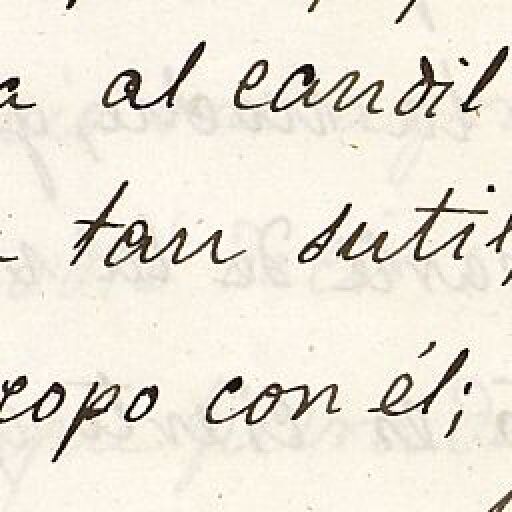 a al candil
tan sutil,
copo con él;